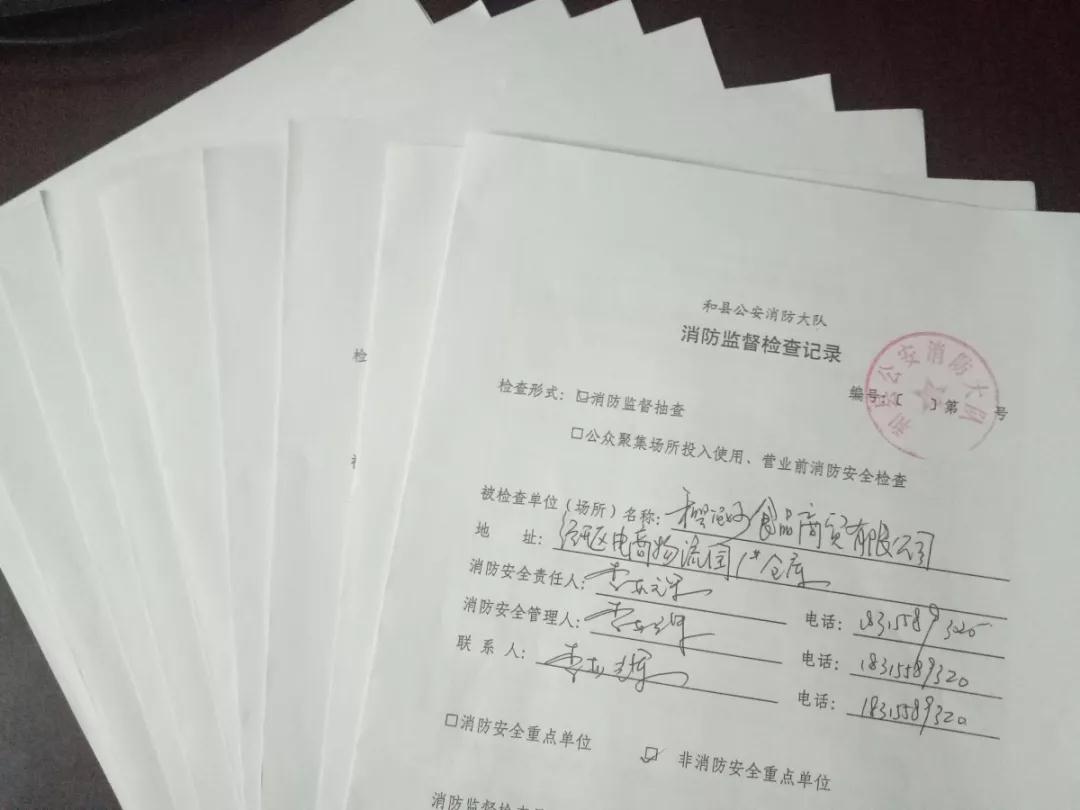 和县公安消防大队
消防监督检查记录
编号：〔 〕第 号
和县公安消防大队
检查形式：☑消防监督抽查
□公众聚集场所投入使用、营业前消防安全检查
被检查单位（场所）名称：食品商贸有限公司
地 址：经开区电商物流园1#仓库
消防安全责任人：李
消防安全管理人：李 电话：18315589320
联 系 人：李 电话：18315589320
电话：18315589320
□消防安全重点单位 ☑ 非消防安全重点单位
消防监督检查员
检